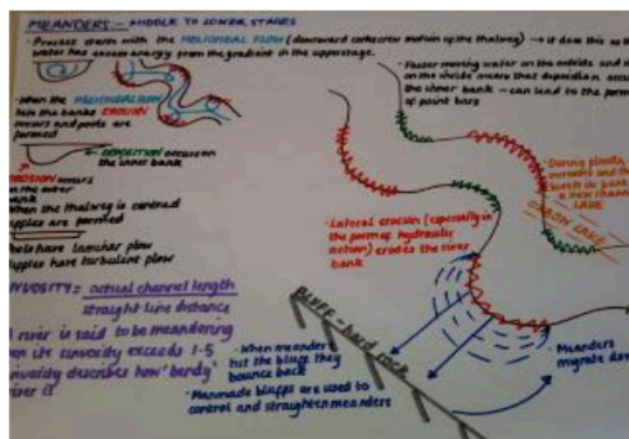 MEANDERS - MIDDLE TO LOWER STAGES
· Process starts with the HELICOIDAL FLOW (downward corkscrew motion of the thalweg) → it does this as the
water has excess energy from the gradient in the upperstage.
· When the HELICOIDAL FLOW
hits the banks EROSION
occurs and pools are
formed
DEPOSITION occurs on
the inner bank
EROSION occurs
on the outer
bank
When the thalweg is central
riffles are formed
Pools have laminar flow
Riffles have turbulent flow
SINUOSITY = actual channel length
straight line distance
A river is said to be meandering
when its sinuosity exceeds 1.5
sinuosity describes how 'bendy'
river is
· Faster moving water on the outside and
on the inside means that deposition
the inner bank - can lead to the
of point bars
· During floods,
and the
bursts its bank
a new channel
LAKE
OXBOW LAKE
· Lateral erosion (especially in
the form of hydraulic
action) erodes the river
bank
BLUFF - hard rock
· When meander
hit the bluff they
bounce back
· Manmade bluffs are used to
control and straighten meanders
· Meanders
migrate